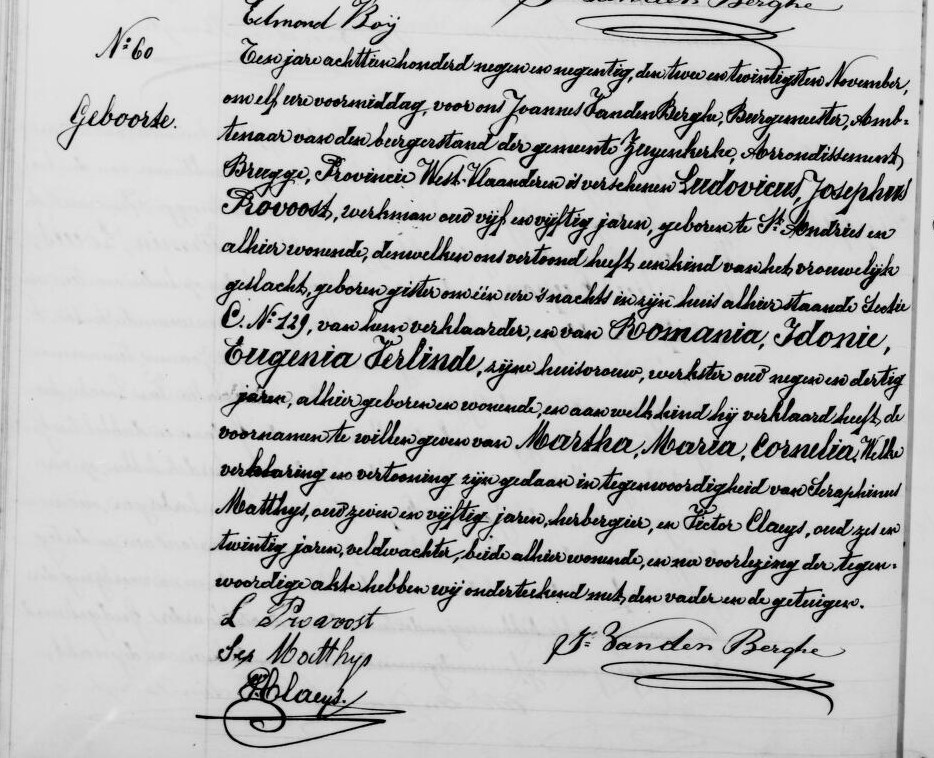 Edmond Boÿ
Vanden Berghe
Nr 60
Geboorte.
Ten jare achttien honderd negen en negentig, den twee en twintigsten November,
om elf ure voormiddag, voor ons Joannes Vanden Berghe, Burgemeester, Amb-
tenaar van den burgerstand der gemeente Zuyenkerke, Arrondissement
Brugge, Provincie West-Vlaanderen is verschenen Ludovicus, Josephus
Provoost, werkman oud vijf en vijftig jaren, geboren te St Andries en
alhier wonende, denwelken ons vertoond heeft een kind van het vrouwelijk
geslacht, geboren gister om één ure 's nachts in zijn huis alhier staande Sectie
C. Nr 129, van hem verklaarder, en van Romania, Idonie,
Eugenia Verlinde, zijne huisvrouw, werkster oud negen en dertig
jaren, alhier geboren en wonende, en aan welk kind hij verklaard heeft de
voornamen te willen geven van Martha, Maria, Cornelia, Welke
verklaring en vertooning zijn gedaan in tegenwoordigheid van Seraphinus
Matthys, oud zeven en vijftig jaren, herbergier, en Victor Claeys, oud zes en
twintig jaren, veldwachter, beide alhier wonende, en na voorlezing der tegen-
woordige akte hebben wij onderteekend met den vader en de getuigen.
L Provoost
Ser Matthys
Js Vanden Berghe
V Claeys.